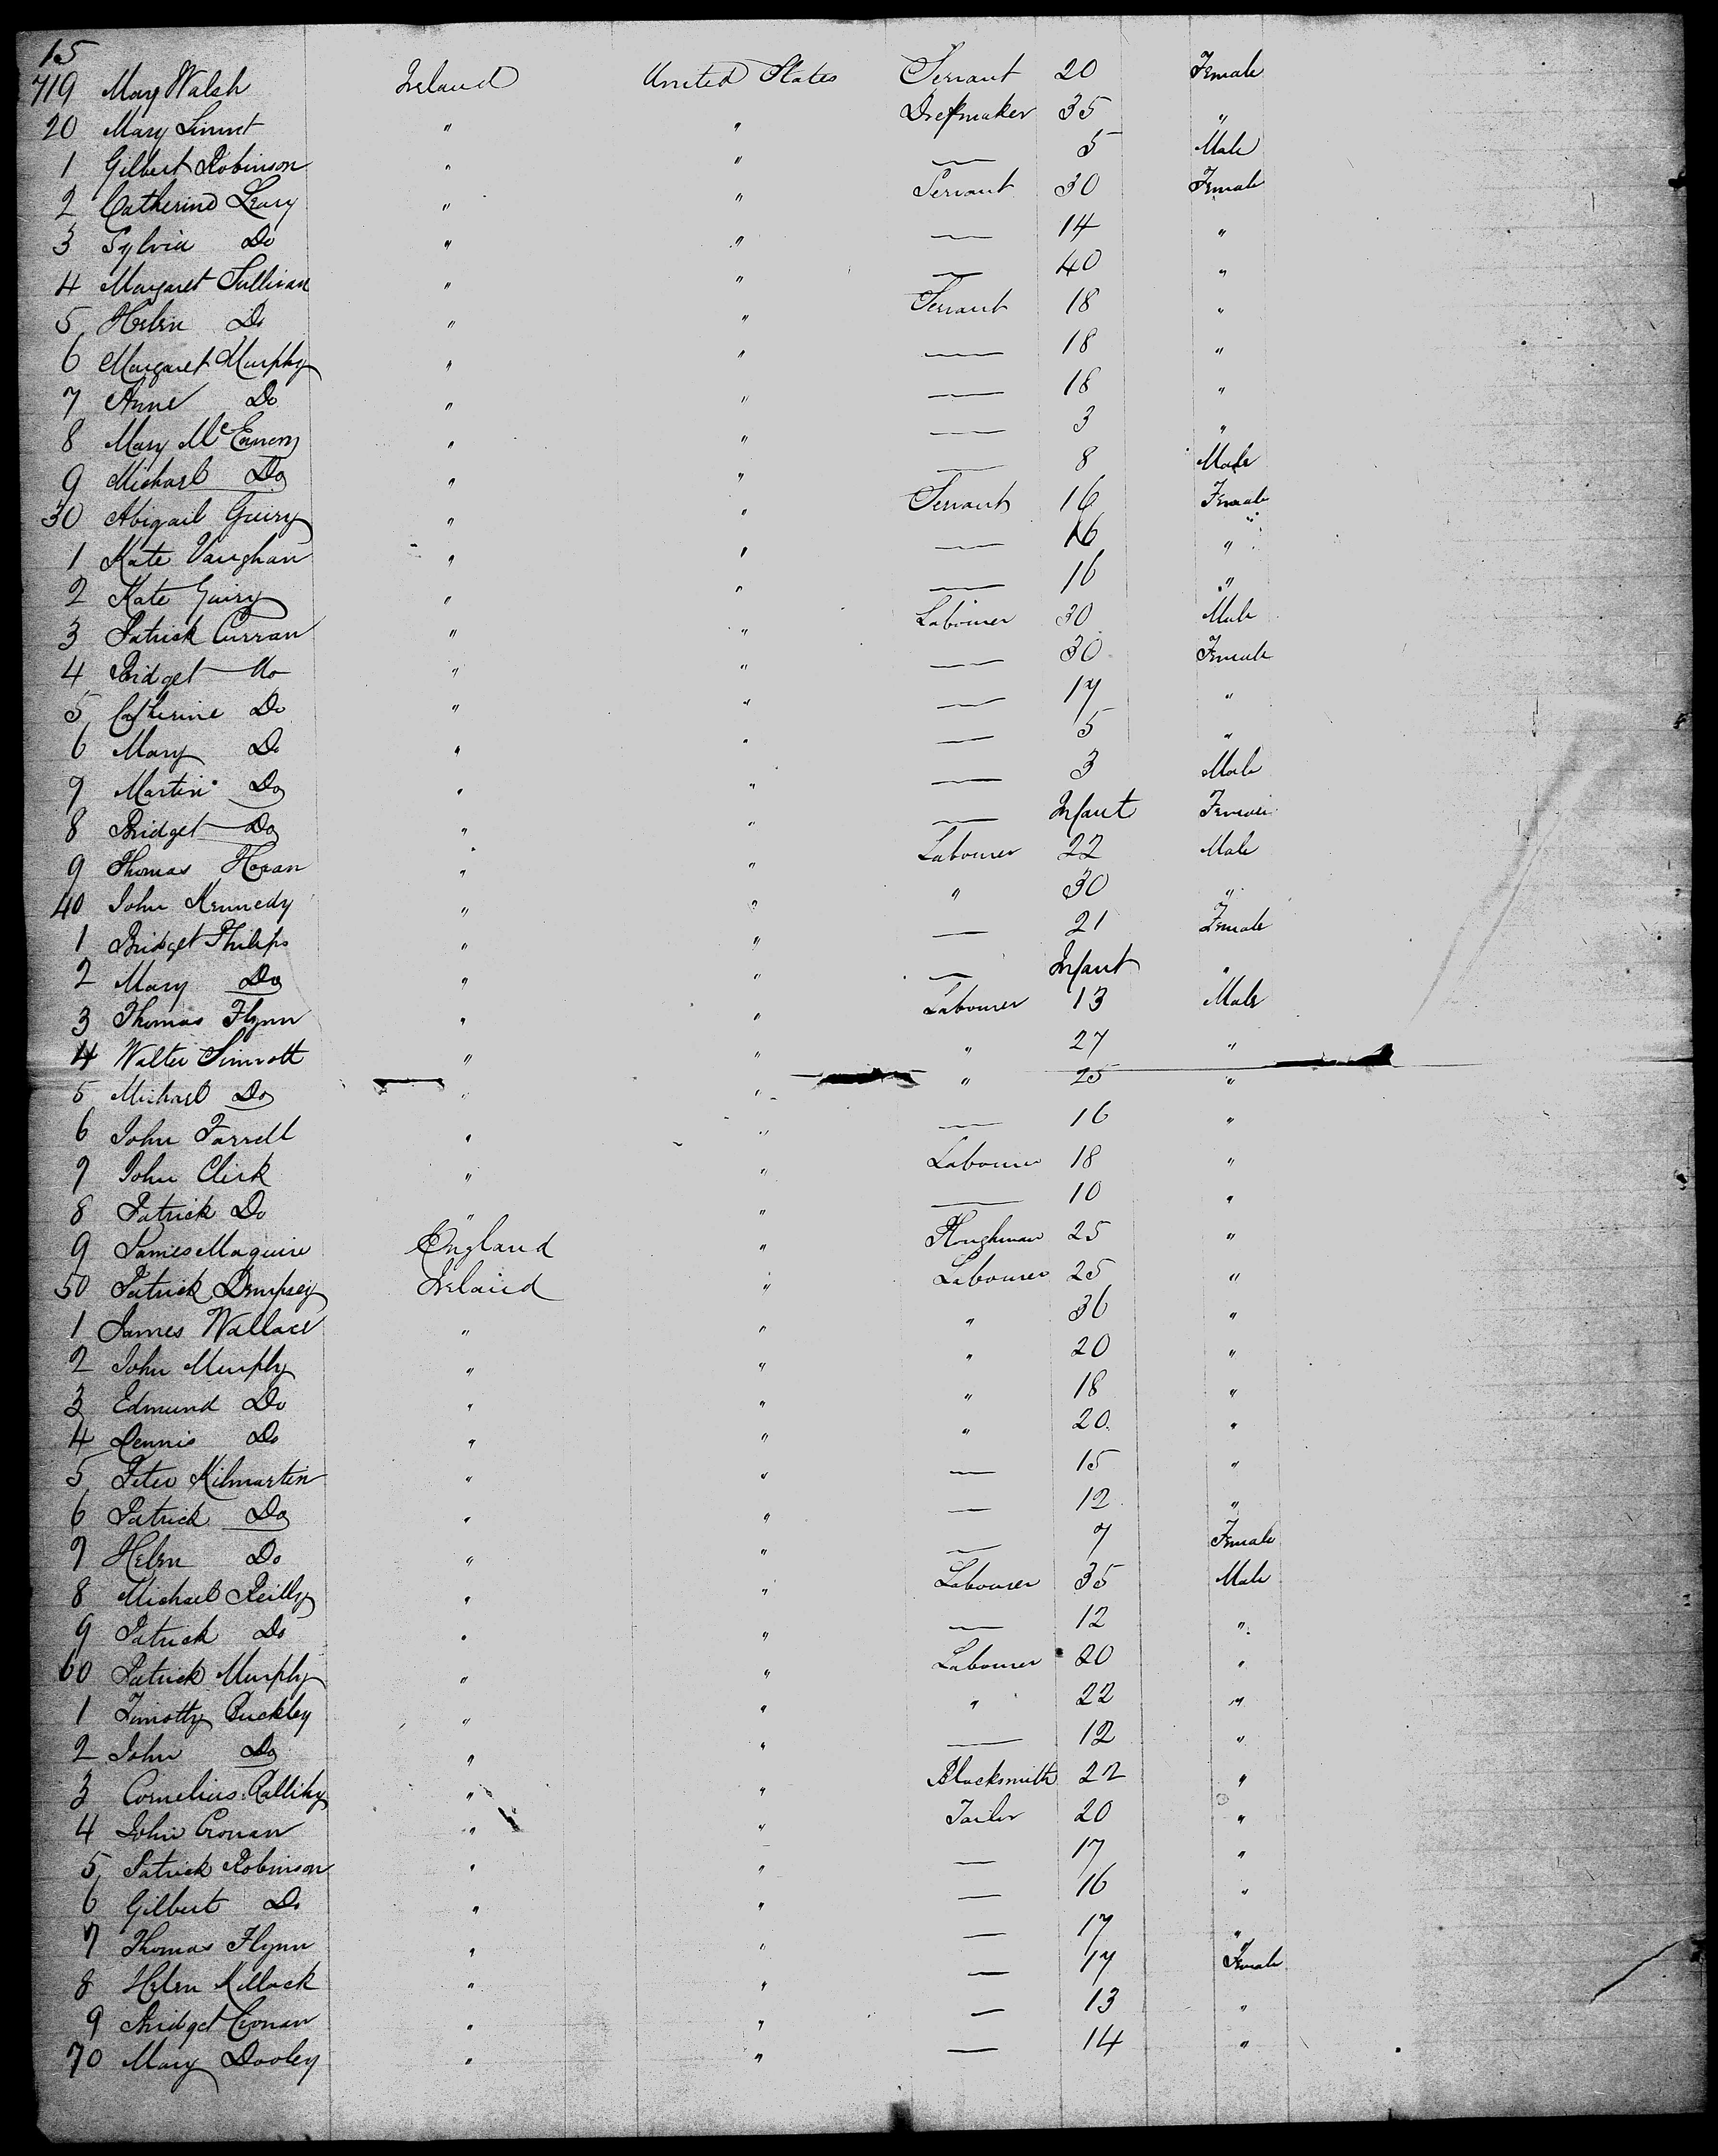 15
719 Mary Walsh Ireland United States Servant 20 Female
20 Mary " " Dressmaker 35 "
1 Gilbert Robinson " " — 5 Male
2 Catherine Leary " " Servant 30 Female
3 Sylvia Do " " — 14 "
4 Margaret Sullivan " " — 40 "
5 Helen Do " " Servant 18 "
6 Margaret Murphy " " — 18 "
7 Anne Do " " — 18 "
8 Mary Mc " " — 3 "
9 Michael Do " " — 8 Male
30 Abigail Guiry " " Servant 16 Female
1 Kate Vaughan " " — 16 "
2 Kate Guiry " " — 16 "
3 Patrick Curran " " Labourer 30 Male
4 Bridget Do " " — 30 Female
5 Catherine Do " " — 17 "
6 Mary Do " " — 5 "
7 Martin Do " " — 3 Male
8 Bridget Do " " — Infant Female
9 Thomas Horan " " Labourer 22 Male
40 John Kennedy " " " 30 "
1 Bridget Philips " " — 21 Female
2 Mary Do " " — Infant "
3 Thomas Flynn " " Labourer 13 Male
4 Walter Sinnott " " " 27 "
5 Michael Do " " " 25 "
6 John Farrell " " — 16 "
7 John Clerk " " Labourer 18 "
8 Patrick Do " " — 10 "
9 James Maguire England " Ploughman 25 "
50 Patrick Dempsey Ireland " Labourer 25 "
1 James Wallace " " " 36 "
2 John Murphy " " " 20 "
3 Edmund Do " " " 18 "
4 Dennis Do " " " 20 "
5 Peter Kilmartin " " — 15 "
6 Patrick Do " " — 12 "
7 Helen Do " " — 7 Female
8 Michael Reilly " " Labourer 35 Male
9 Patrick Do " " — 12 "
60 Patrick Murphy " " Labourer 20 "
1 Timothy Buckley " " " 22 "
2 John Do " " — 12 "
3 Cornelius " " Blacksmith 22 "
4 John Cronan " " Tailor 20 "
5 Patrick Robinson " " — 17 "
6 Gilbert Do " " — 16 "
7 Thomas Flynn " " — 17 "
8 Helen Killack " " — 17 Female
9 Bridget Cronan " " — 13 "
70 Mary Dooley " " — 14 "